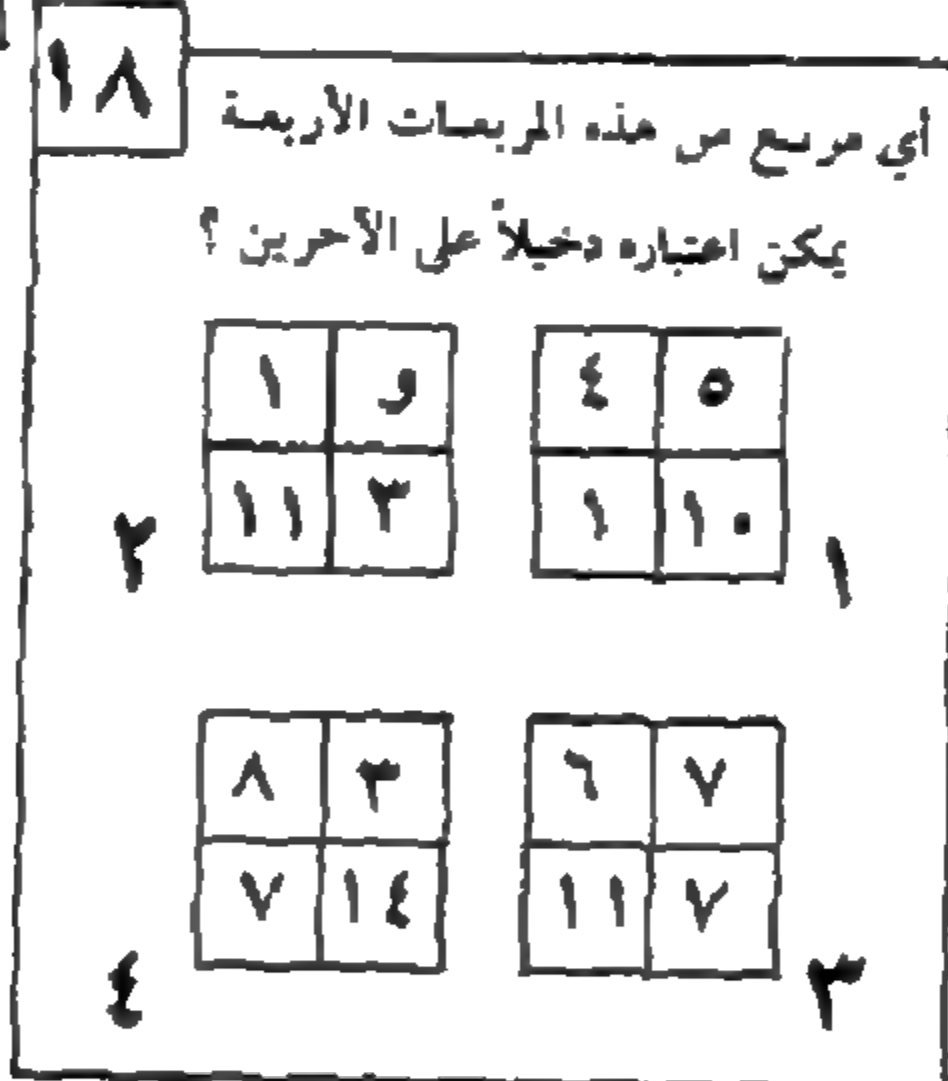 ١٨
أي مربع من هذه المربعات الأربعة
يمكن اعتباره دخيلاً على الآخرين ؟
٥ ٤
١٠ ١
١
و ١
٣ ١١
٢
٧ ٦
٧ ١١
٣
٣ ٨
١٤ ٧
٤